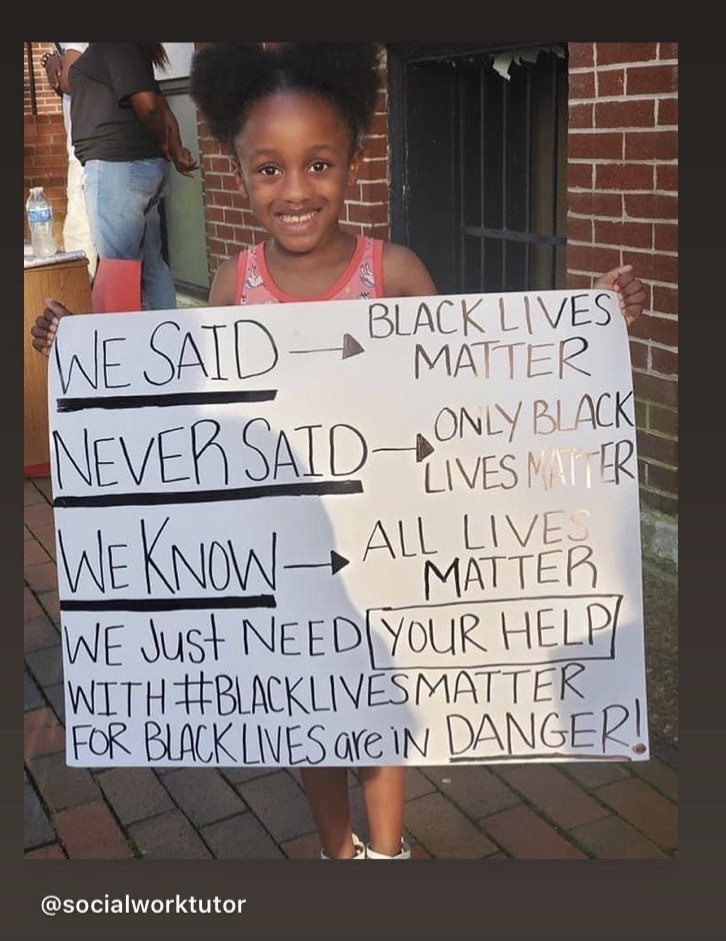 WE SAID → BLACK LIVES
MATTER
NEVER SAID → ONLY BLACK
LIVES MATTER
WE KNOW → ALL LIVES
MATTER
WE Just NEED YOUR HELP
WITH #BLACKLIVESMATTER
FOR BLACK LIVES are iN DANGER!
@socialworktutor